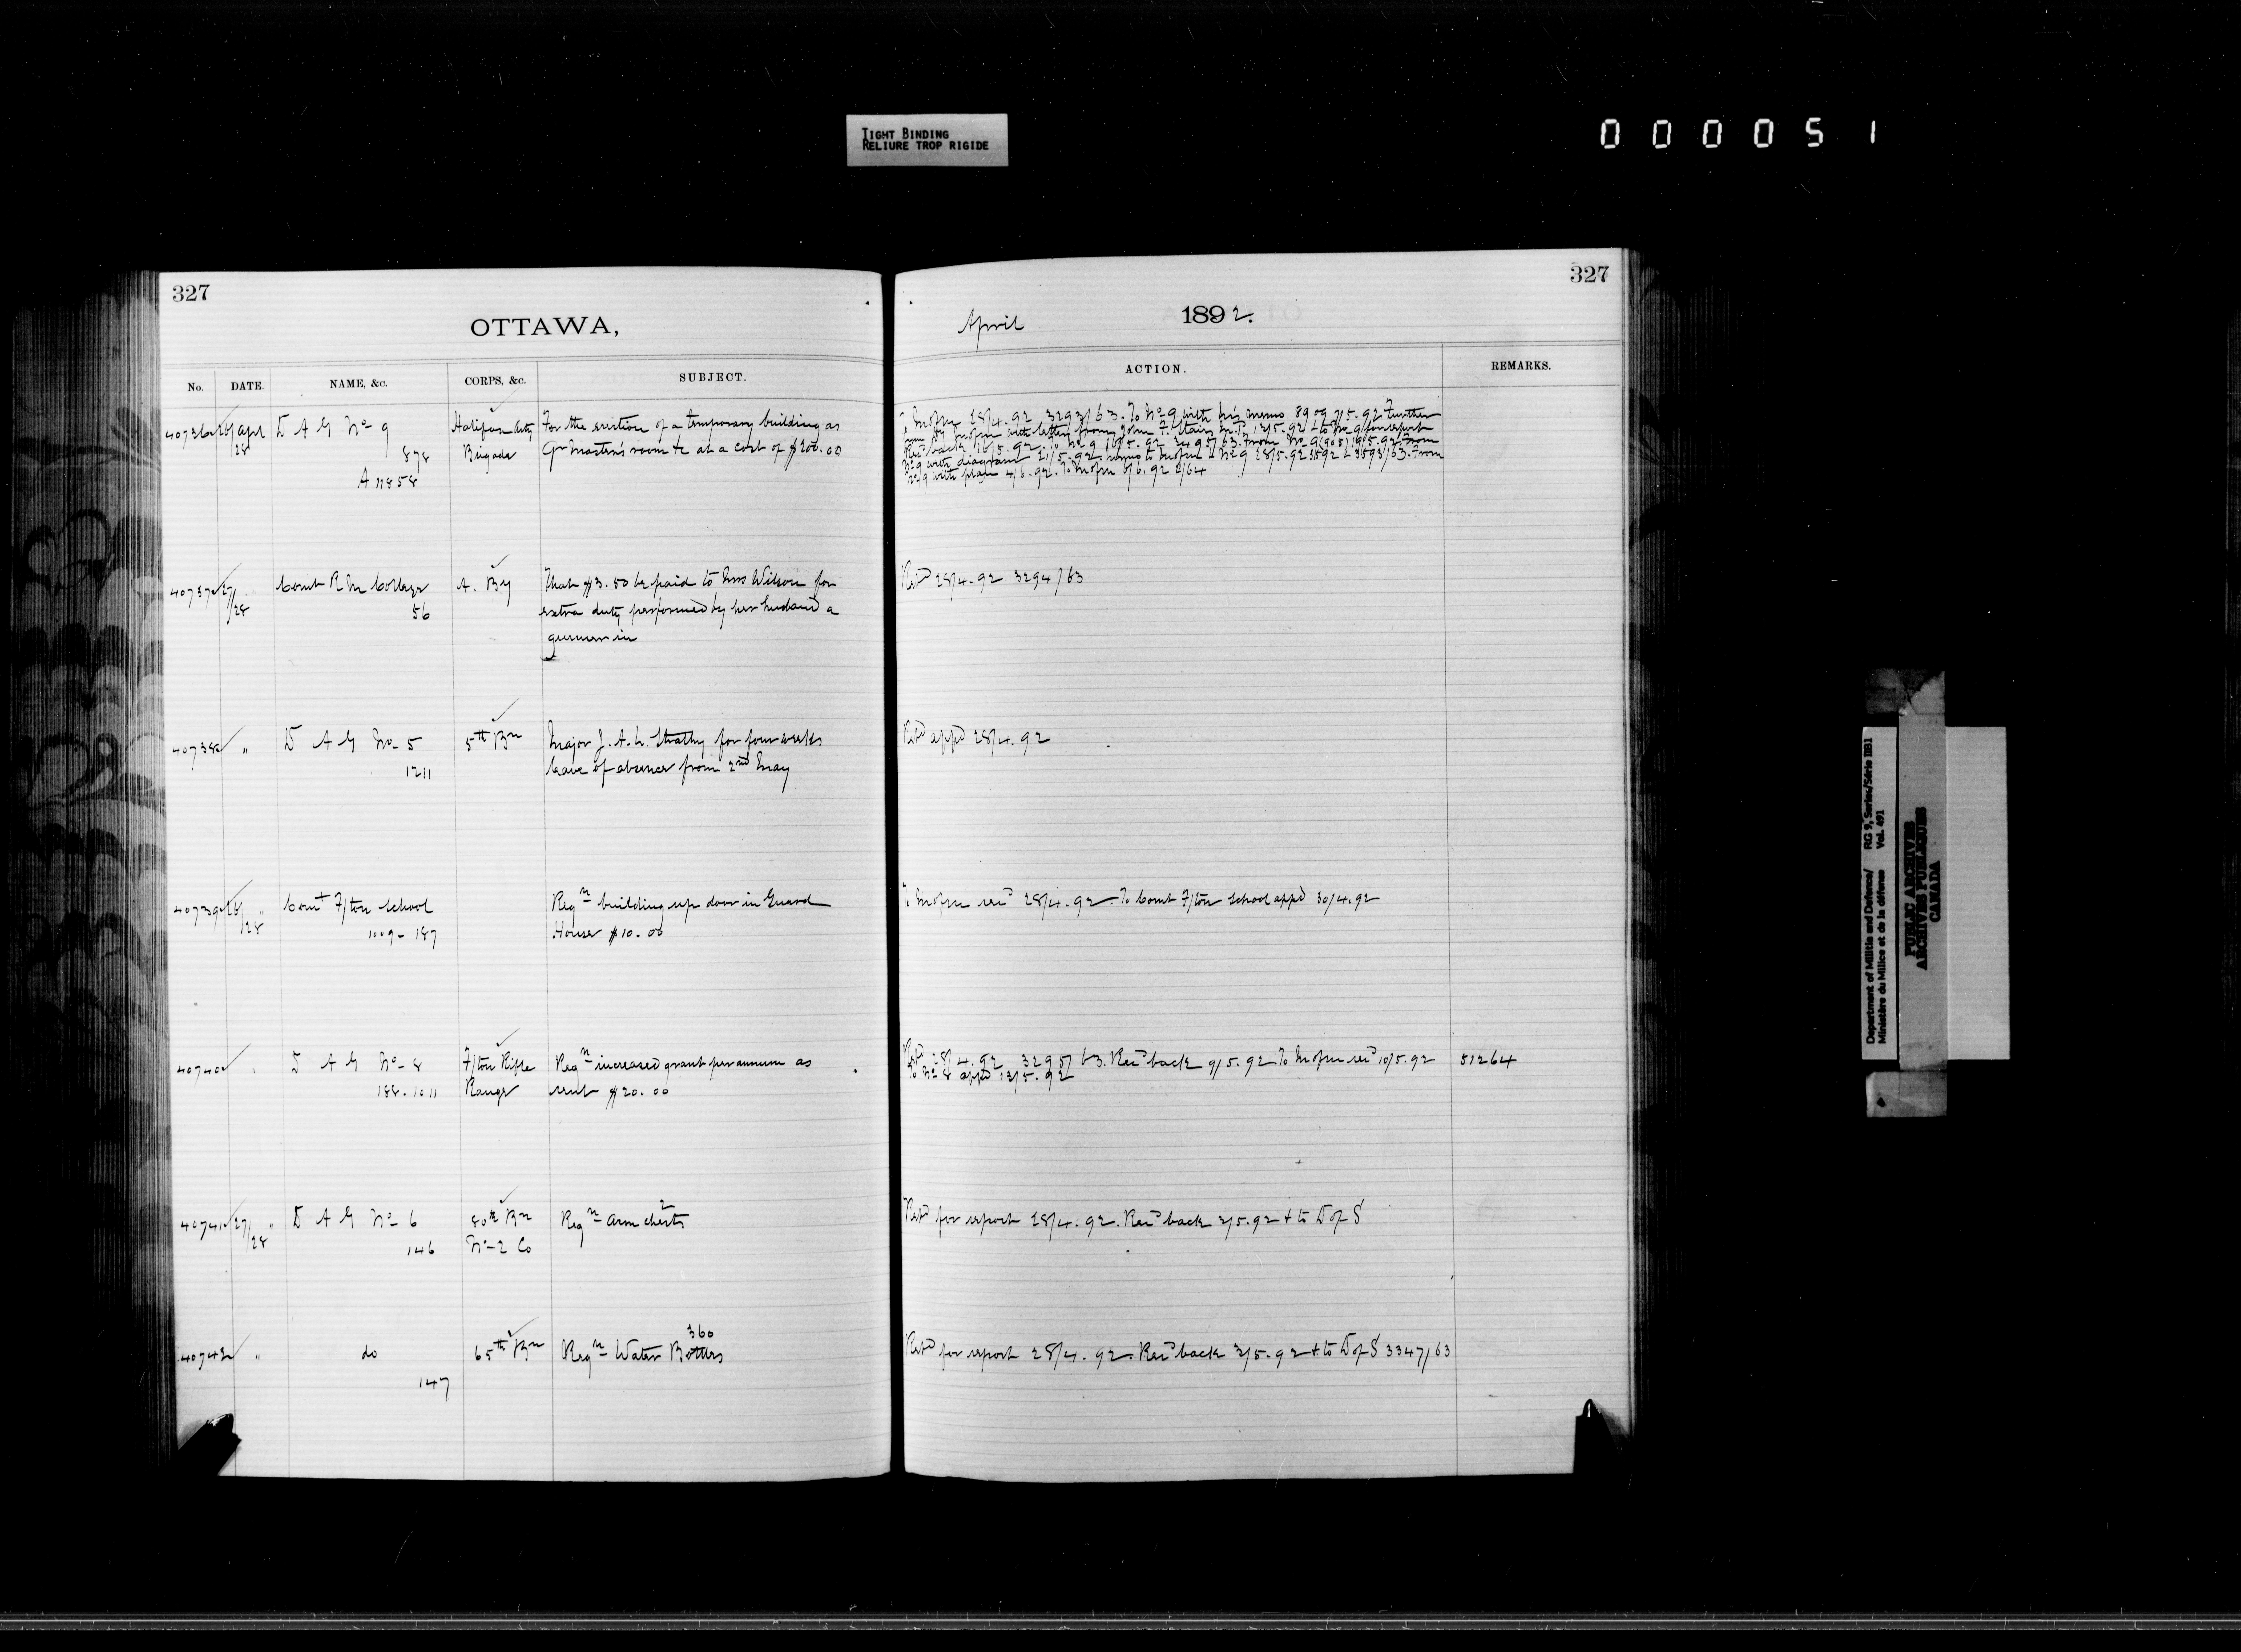 TIGHT BINDING
RELIURE TROP RIGIDE
000051
327
OTTAWA,
No. DATE. NAME, &c. CORPS, &c. SUBJECT.
40736 26/28 Apl D A G No 9 Halifax Arty For the erection of a temporary building as
878 Brigade Qr Master's room &c at a cost of $200.00
A 11858
40737 27/28 " Comt R M College A. By That $3.50 be paid to Mrs Wilson for
56 extra duty performed by her husband a
gunner in
40738 " D A G No 5 5th Bn Major J. A. L. Strathy for four weeks
1211 leave of absence from 2nd May
40739 26/28 " Comt F/ton School Reqn building up door in Guard
1009 - 187 House $10.00
40740 " D A G No 8 F/ton Rifle Reqn increased grant per annum as
188. 1011 Range rent $20.00
40741 27/28 " D A G No 6 80th Bn Reqn arm chests 2
146 No 2 Co
40742 " do 65th Bn Reqn Water Bottles 360
147
327
April 1892.
ACTION. REMARKS.
To Mofm 28/4.92 3293/63. To No 9 with his memo 8909 7/5.92 Further
memo by Mofm with letter from John F. Stairs M.P. 12/5.92 & to No 9 for report
Rec'd back 16/5.92. To No 9 16/5.92 3495/63. From No 9 (905) 19/5.92. From
No 9 with diagram 21/5.92. memo to Mofm & No 9 28/5.92 3592 & 3593/63. From
No 9 with plan 4/6.92. To Mofm 6/6.92 2/64
Ref'd 28/4.92 3294/63
Ret'd app'd 28/4.92
To Mofm rec'd 28/4.92. To Comt F/ton School app'd 30/4.92
Ret'd 28/4.92 3295/63. Rec'd back 9/5.92 To Mofm rec'd 10/5.92 51264
To No 8 app'd 13/5.92
Ref'd for report 28/4.92. Rec'd back 3/5.92 & to D of S
Ref'd for report 28/4.92. Rec'd back 3/5.92 & to D of S 3347/63
Department of Militia and Defence/ RG 9, Series/Série IIB1
Ministère du Milice et de la défense Vol. 491
PUBLIC ARCHIVES
ARCHIVES PUBLIQUES
CANADA